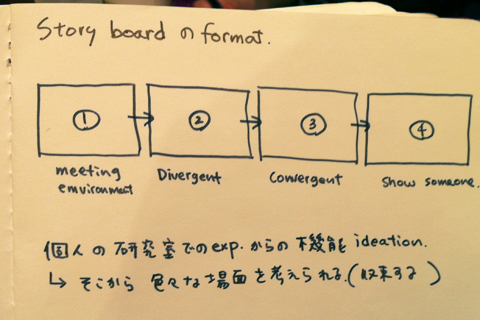 Story board の format.
① ② ③ ④
meeting environment
Divergent
Convergent
Show someone.
個人の研究室でのexp.からの機能 ideation.
↳ そこから 色々な場面を考えられる。(収束する)